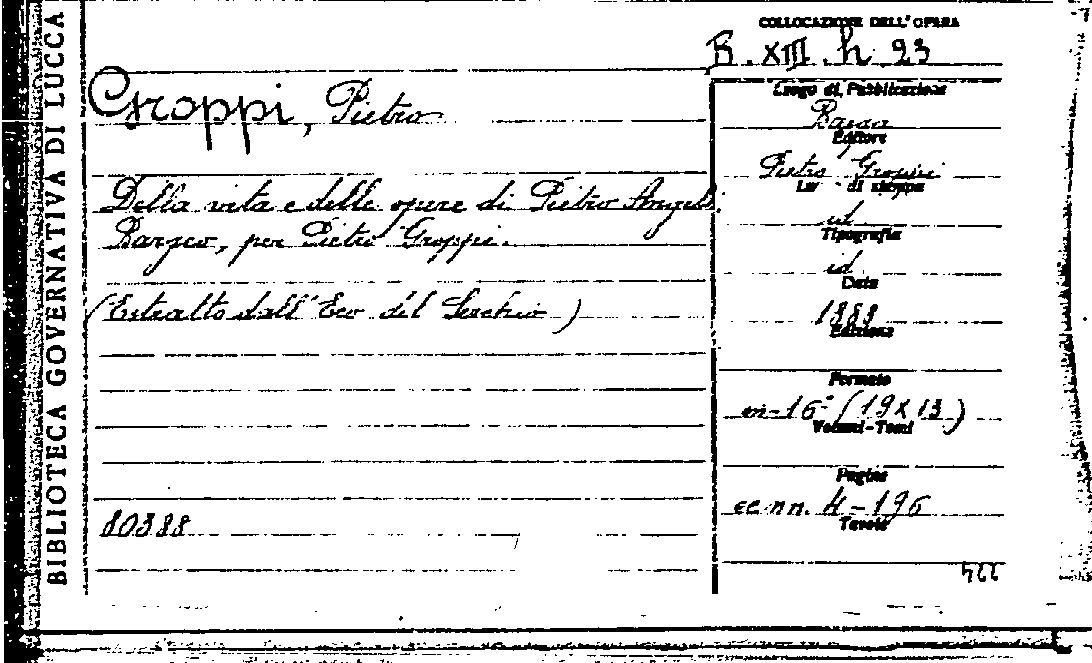 BIBLIOTECA GOVERNATIVA DI LUCCA
COLLOCAZIONE DELL'OPERA
B. XIII. h. 23
Groppi, Pietro
Della vita e delle opere di Pietro Angeli
Bargeo, per Pietro Groppi.
(Estratto dall'Eco del Serchio)
80388
Luogo di Pubblicazione
Barga
Editore
Pietro Groppi
Luogo di stampa
id
Tipografia
id
Data
1888
Edizione
Formato
in-16° (19x13)
Volumi-Tomi
Pagine
cc nn. 4-196
Tavole